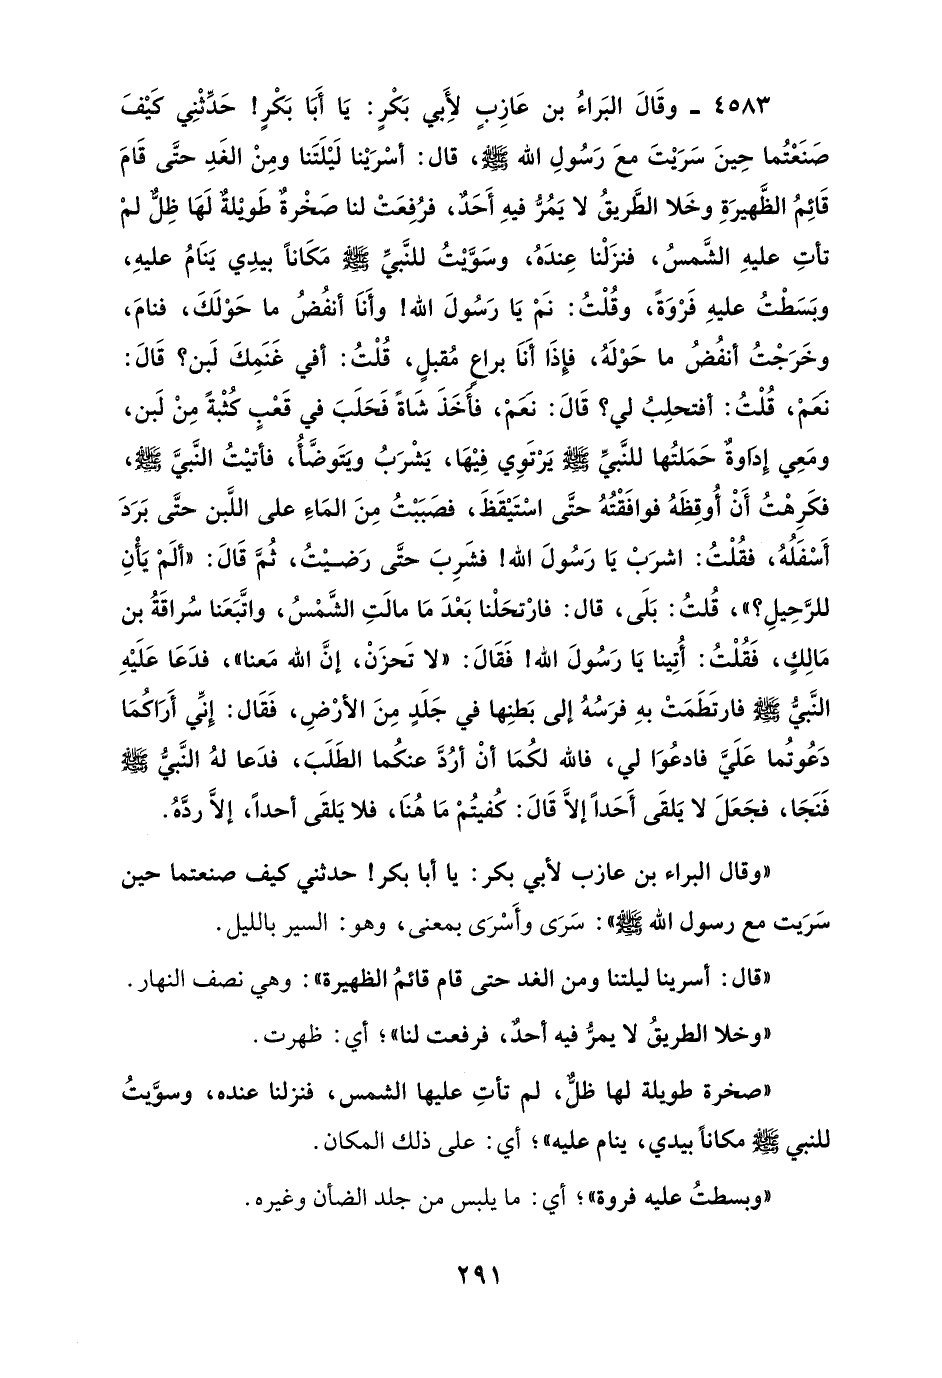 ٤٥٨٣ ـ وقَالَ البَراءُ بن عَازِبٍ لأَِبي بَكْرٍ: يَا أَبَا بَكْرٍ! حَدِّثْنِي كَيْفَ
صَنَعْتُما حِينَ سَرَيْتَ معَ رَسُولِ الله ﷺ، قال: أسْرَيْنا لَيْلَتَنا ومِنْ الغَدِ حتَّى قَامَ
قَائِمُ الظَّهيرَةِ وخَلا الطَّريقُ لا يَمُرُّ فيهِ أَحَدٌ، فرُفِعَتْ لنا صَخْرةٌ طَويلةٌ لَهَا ظِلٌّ لمْ
تأتِ عليهِ الشَّمسُ، فنزلْنا عِندَهُ، وسَوَّيْتُ للنَّبيِّ ﷺ مَكَاناً بيدِي يَنَامُ عليهِ،
وبَسَطْتُ عليهِ فَرْوَةً، وقُلْتُ: نَمْ يَا رَسُولَ الله! وأَنَا أنفُضُ ما حَوْلَكَ، فنامَ،
وخَرَجْتُ أنفُضُ ما حَوْلَهُ، فإِذَا أنَا براعٍ مُقبلٍ، قُلْتُ: أفي غَنَمِكَ لَبن؟ قَالَ:
نعَمْ، قُلْتُ: أفتحلِبُ لي؟ قَالَ: نعَمْ، فأَخَذَ شَاةً فَحَلَبَ في قَعْبٍ كُثْبةً مِنْ لَبن،
ومَعِي إِدَاوةٌ حَمَلتُها للنَّبيِّ ﷺ يَرْتَوِي فِيْهَا، يَشْرَبُ ويَتَوضَّأُ، فأتيْتُ النَّبيَّ ﷺ،
فكَرِهْتُ أَنْ أُوقِظَهُ فوافَقْتُهُ حتَّى اسْتَيْقَظَ، فصَبَبْتُ مِنَ المَاءِ على اللَّبن حتَّى بَرَدَ
أَسْفَلُهُ، فقُلْتُ: اشرَبْ يا رَسُولَ الله! فشَرِبَ حتَّى رَضيْتُ، ثُمَّ قَالَ: «ألَمْ يَأْنِ
للرَّحِيلِ؟»، قُلتُ: بَلَى، قال: فارْتحَلْنا بَعْدَ مَا مالَتِ الشَّمْسُ، واتَّبَعَنا سُراقَةُ بن
مَالِكٍ، فَقُلْتُ: أُتِينا يَا رَسُولَ الله! فقَالَ: «لا تَحزَنْ، إنَّ الله مَعنا»، فدَعَا عَلَيْهِ
النَّبيُّ ﷺ فارتَطَمَتْ بهِ فرَسُهُ إلى بَطنِها في جَلَدٍ مِنَ الأرْضِ، فَقَال: إنِّي أَرَاكُمَا
دَعَُوتُما عَلَيَّ فادعُوَا لي، فالله لكُمَا أنْ أرُدَّ عنكُما الطَلَبَ، فدَعا لهُ النَّبيُّ ﷺ
فَنَجَا، فجَعَلَ لا يَلقَى أَحَداً إلاَّ قَالَ: كُفيتُمْ مَا هُنَا، فلا يَلقَى أحداً، إلاَّ ردَّهُ.
«وقال البراء بن عازب لأبي بكر: يا أبا بكر! حدثني كيف صنعتما حين
سَرَيت مع رسول الله ﷺ»: سَرَى وأَسْرَى بمعنى، وهو: السير بالليل.
«قال: أسرينا ليلتنا ومن الغد حتى قام قائمُ الظهيرة»: وهي نصف النهار.
«وخلا الطريقُ لا يمرُّ فيه أحدٌ، فرفعت لنا»؛ أي: ظهرت.
«صخرة طويلة لها ظلٌّ، لم تأتِ عليها الشمس، فنزلنا عنده، وسوَّيتُ
للنبي ﷺ مكاناً بيدي، ينام عليه»؛ أي: على ذلك المكان.
«وبسطتُ عليه فروة»؛ أي: ما يلبس من جلد الضأن وغيره.
٢٩١